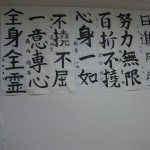 日進月
努力無限
百折不撓
心身一如
不撓不屈
一意専心
全身全霊